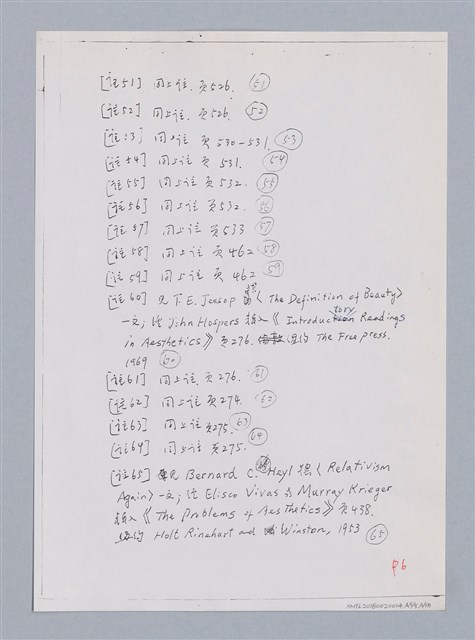 [註51] 同上註. 頁526. 51
[註52] 同上註. 頁526. 52
[註53] 同上註 頁530-531. 53
[註54] 同上註 頁531. 54
[註55] 同上註 頁532. 55
[註56] 同上註. 頁532. 56
[註57] 同上註 頁533 57
[註58] 同上註 頁462 58
[註59] 同上註. 頁462 59
[註60] 見 T. E. Jessop 〈The Definition of Beauty〉
一文; John Hospers 輯入《Introductory Readings
in Aesthetics》頁276. 紐約 The Free press.
1969 60
[註61] 同上註. 頁276. 61
[註62] 同上註 頁274. 62
[註63] 同上註 頁275. 63
[註64] 同上註 頁275. 64
[註65] 見 Bernard C. Heyl 撰〈Relativism
Again〉一文; Eliseo Vivas 與 Murray Krieger
輯入《The Problems of Aesthetics》頁438.
紐約 Holt Rinehart and Winston, 1953 65
P6